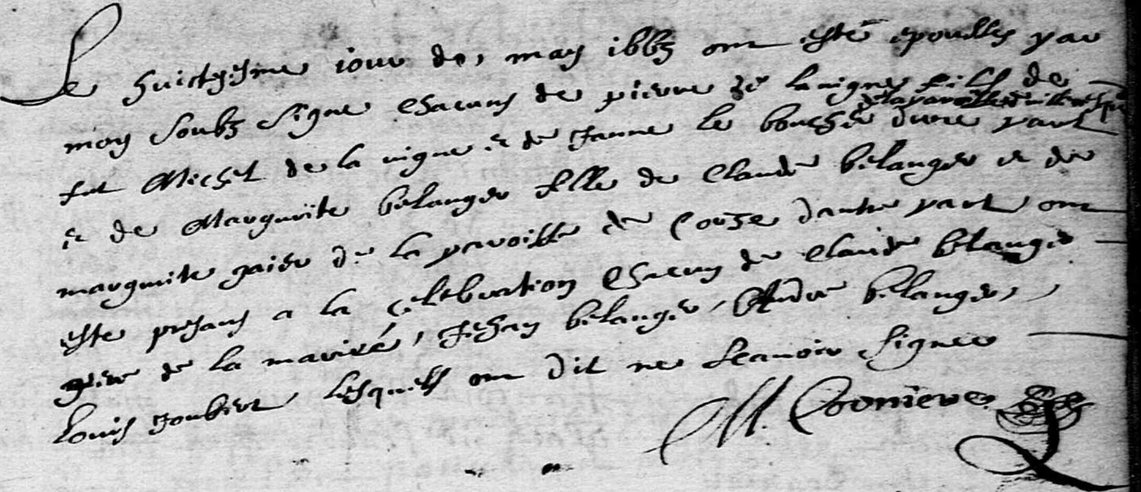 Le huictiesme iour de may 1663 ont esté epousés par
moy soubz signe chacuns de pierre de la vigne fils de
de la paroisse
fut Michel de la vigne et de Janne le bouche dune part
et de Marguerite belanger fille de Claude belanger et de
marguerite gaier de la paroisse de Corze dautre part ont
este presans a la celebration chacun de Claude belanger
pere de la mariée, Jehan belanger, Andre belanger,
Louis Joubert lesquels ont dit ne scauoir signer
M. Coonieve